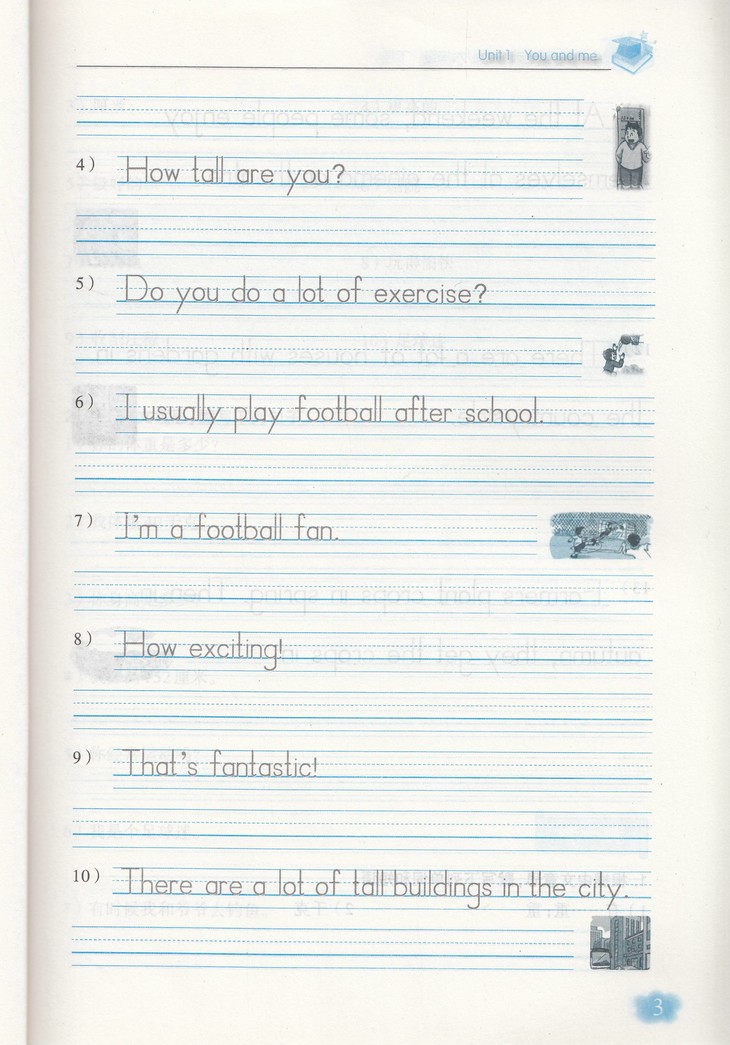 Unit 1 You and me
4) How tall are you?
5) Do you do a lot of exercise?
6) I usually play football after school.
7) I'm a football fan.
8) How exciting!
9) That's fantastic!
10) There are a lot of tall buildings in the city.
3